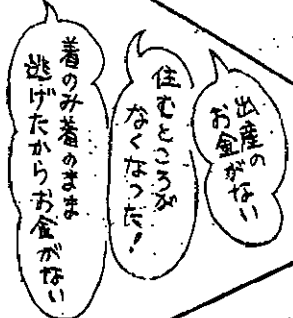 出産の
お金がない
住むところが
なくなった!
着のみ着のまま
逃げたからお金がない